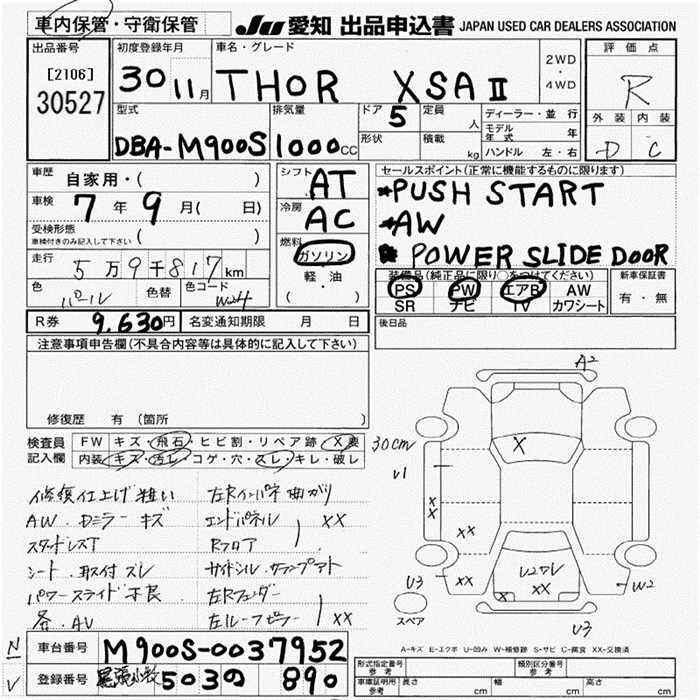 車内保管・守衛保管
JU 愛知 出品申込書 JAPAN USED CAR DEALERS ASSOCIATION
出品番号
[2106]
30527
初度登録年月
30 11月
車名・グレード
THOR XSAⅡ
2WD
・
4WD
評価点
R
外装 内装
D C
型式
DBA-M900S
排気量
1000cc
ドア 5
定員 人
形状
積載 kg
ディーラー・並行
モデル年式 年
ハンドル 左・右
車歴 自家用・( )
車検 7年9月( 日)
受検形態
車検付きのみ記入して下さい ( )
走行 5万9千817km
色 パール
色替
色コード W24
シフト AT
冷房 AC
燃料 ガソリン
軽・油
( ・ )
セールスポイント(正常に機能するものに限ります)
*PUSH START
*AW
* POWER SLIDE DOOR
装備品(純正品に限り○をつけてください)
PS PW エアB AW
SR ナビ TV カワシート
新車保証書
有・無
R券 9,630円
名変通知期限 月 日
後日品
注意事項申告欄(不具合内容等は具体的に記入して下さい)
修復歴 有(箇所 )
検査員記入欄
FW キズ・飛石・ヒビ割・リペア跡・X要
内装 キズ・汚レ・コゲ・穴・スレ・キレ・破レ
修復仕上げ粗い
AW.Dミラーキズ
スタッドレスT
シート.取付ズレ
パワースライド不良
各.AU
左Rインパネ曲がり
エンドパネル XX
Rフロア
サイドシル.ランプアト
左Rフェンダー
左ルーフピラー XX
A2
30cm
U1
X
XX
XX
XX
U2ワレ
X XX
U3
W2
U3
スペア
A-キズ E-エクボ U-凹み W-補修跡 S-サビ C-腐食 XX-交換済
N
V
車台番号 M900S-0037952
登録番号 尾張小牧 503の 890
形式指定番号
参考
類別区分番号
参考
車庫証明用
参考
長さ cm
幅 cm
高さ cm